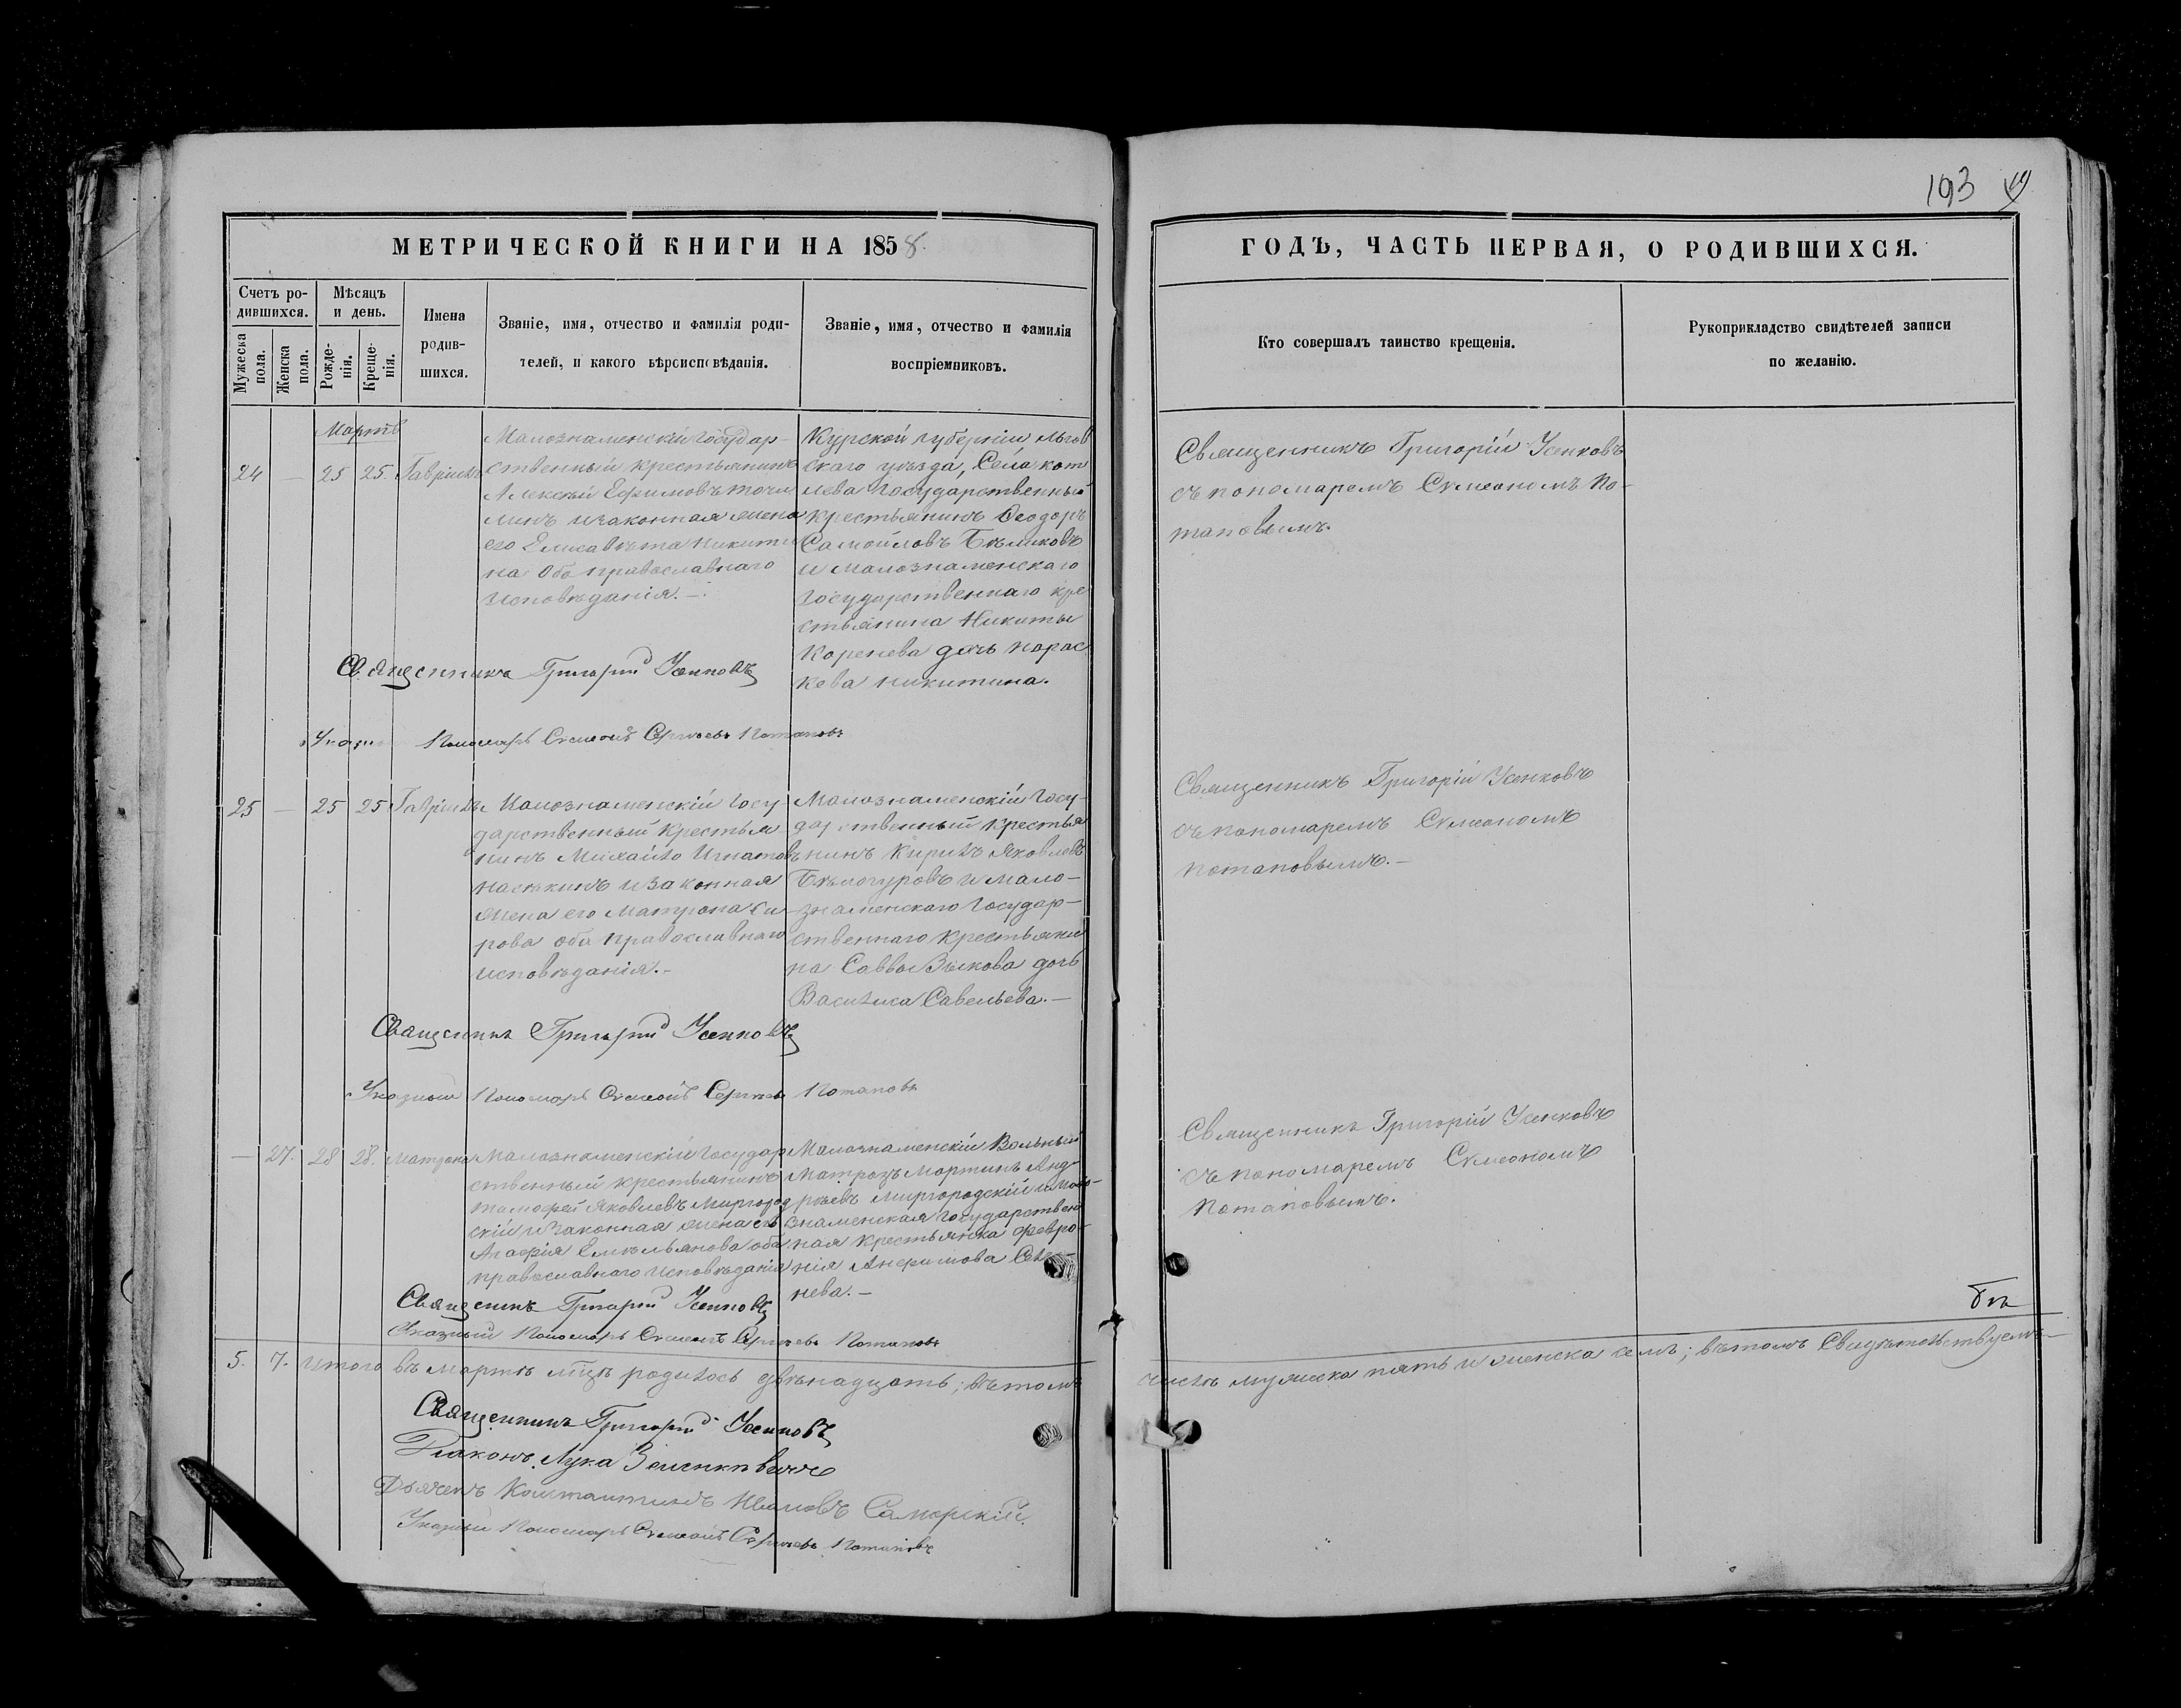 193
МЕТРИЧЕСКОЙ КНИГИ НА 1858.
ГОДЪ, ЧАСТЬ ПЕРВАЯ, О РОДИВШИХСЯ.
Счетъ ро-
дившихся.
Мужеска пола.
Женска пола.
Мѣсяцъ
и день.
Рожде-
нія.
Креще-
нія.
Имена
родив-
шихся.
Званіе, имя, отчество и фамилія роди-
телей, и какого вѣроисповѣданія.
Званіе, имя, отчество и фамилія
воспріемниковъ.
Кто совершалъ таинство крещенія.
Рукоприкладство свидѣтелей записи
по желанію.
Мартъ
24 — 25 25. Гавріилъ
Малознаменскій Государ-
ственный крестьянинъ
Алексѣй Ефимовъ
линъ и законная жена
его Елисавѣта Никити
на Оба православнаго
исповѣданія.—
Курской губерніи Льгов
скаго уѣзда, Села Кот
лева Государственный
крестьянинъ Ѳеодоръ
Самойловъ Бѣликовъ
и Малознаменскаго
государственнаго кре
стьянина Никиты
Коренева дочь Парас
кева Никитина.
Священникъ Григорій Усенковъ
съ пономаремъ Сѵмеономъ По-
таповымъ.
Священникъ Григорій Усенковъ
Пономарь Сѵмеонъ Сергѣевъ Потаповъ
25 — 25 25 Гавріилъ
Малознаменскій Госу
дарственный крестья
нинъ Михайло Игнатовъ
и законная
жена его Матрона Ки
рова оба православнаго
исповѣданія.—
Малознаменскій Госу-
дарственный крестья
нинъ Кирилъ Яковлевъ
Бѣлогуровъ и мало-
знаменскаго Государ-
ственнаго крестьяни
на Саввы Зыкова дочь
Василиса Савельева.—
Священникъ Григорій Усенковъ
съ пономаремъ Сѵмеономъ
Потаповымъ.—
Священникъ Григорій Усенковъ
Указный Пономарь Сѵмеонъ Сергѣевъ Потаповъ
— 27. 28 28. Матрона
Малознаменскій Государ
ственный крестьянинъ
Тимофей Яковлевъ Миргород
скій и законная жена его
Агафія Емельянова оба
православнаго исповѣданія
Малознаменскій Вольный
Матрозъ Мартинъ Анд-
рѣевъ Миргородскій и мало-
знаменская государствен
ная крестьянка Февро-
нія Анфимова
нева.—
Священникъ Григорій Усенковъ
съ пономаремъ Сѵмеономъ
Потаповымъ.
Священникъ Григорій Усенковъ
Указный Пономарь Сѵмеонъ Сергѣевъ Потаповъ
5. 7. Итого въ Мартѣ мцѣ родилось двѣнадцать; въ томъ числѣ мужеска пять и женска семь; въ томъ Свидѣтельствуемъ
Священникъ Григорій Усенковъ
Діаконъ Лука Зеленкевичъ
Дьячекъ Константинъ Ивановъ Самарскій.
Указный Пономарь Сѵмеонъ Сергѣевъ Потаповъ